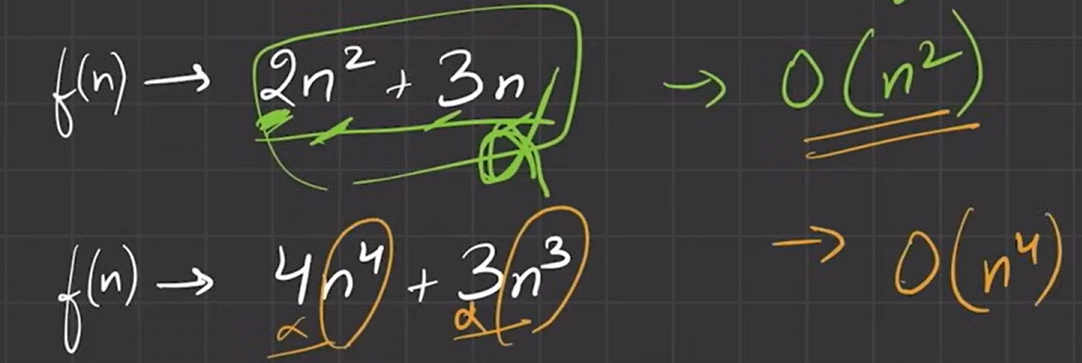 f(n) → 2n² + 3n → O(n²)
f(n) → 4n⁴ + 3n³ → O(n⁴)